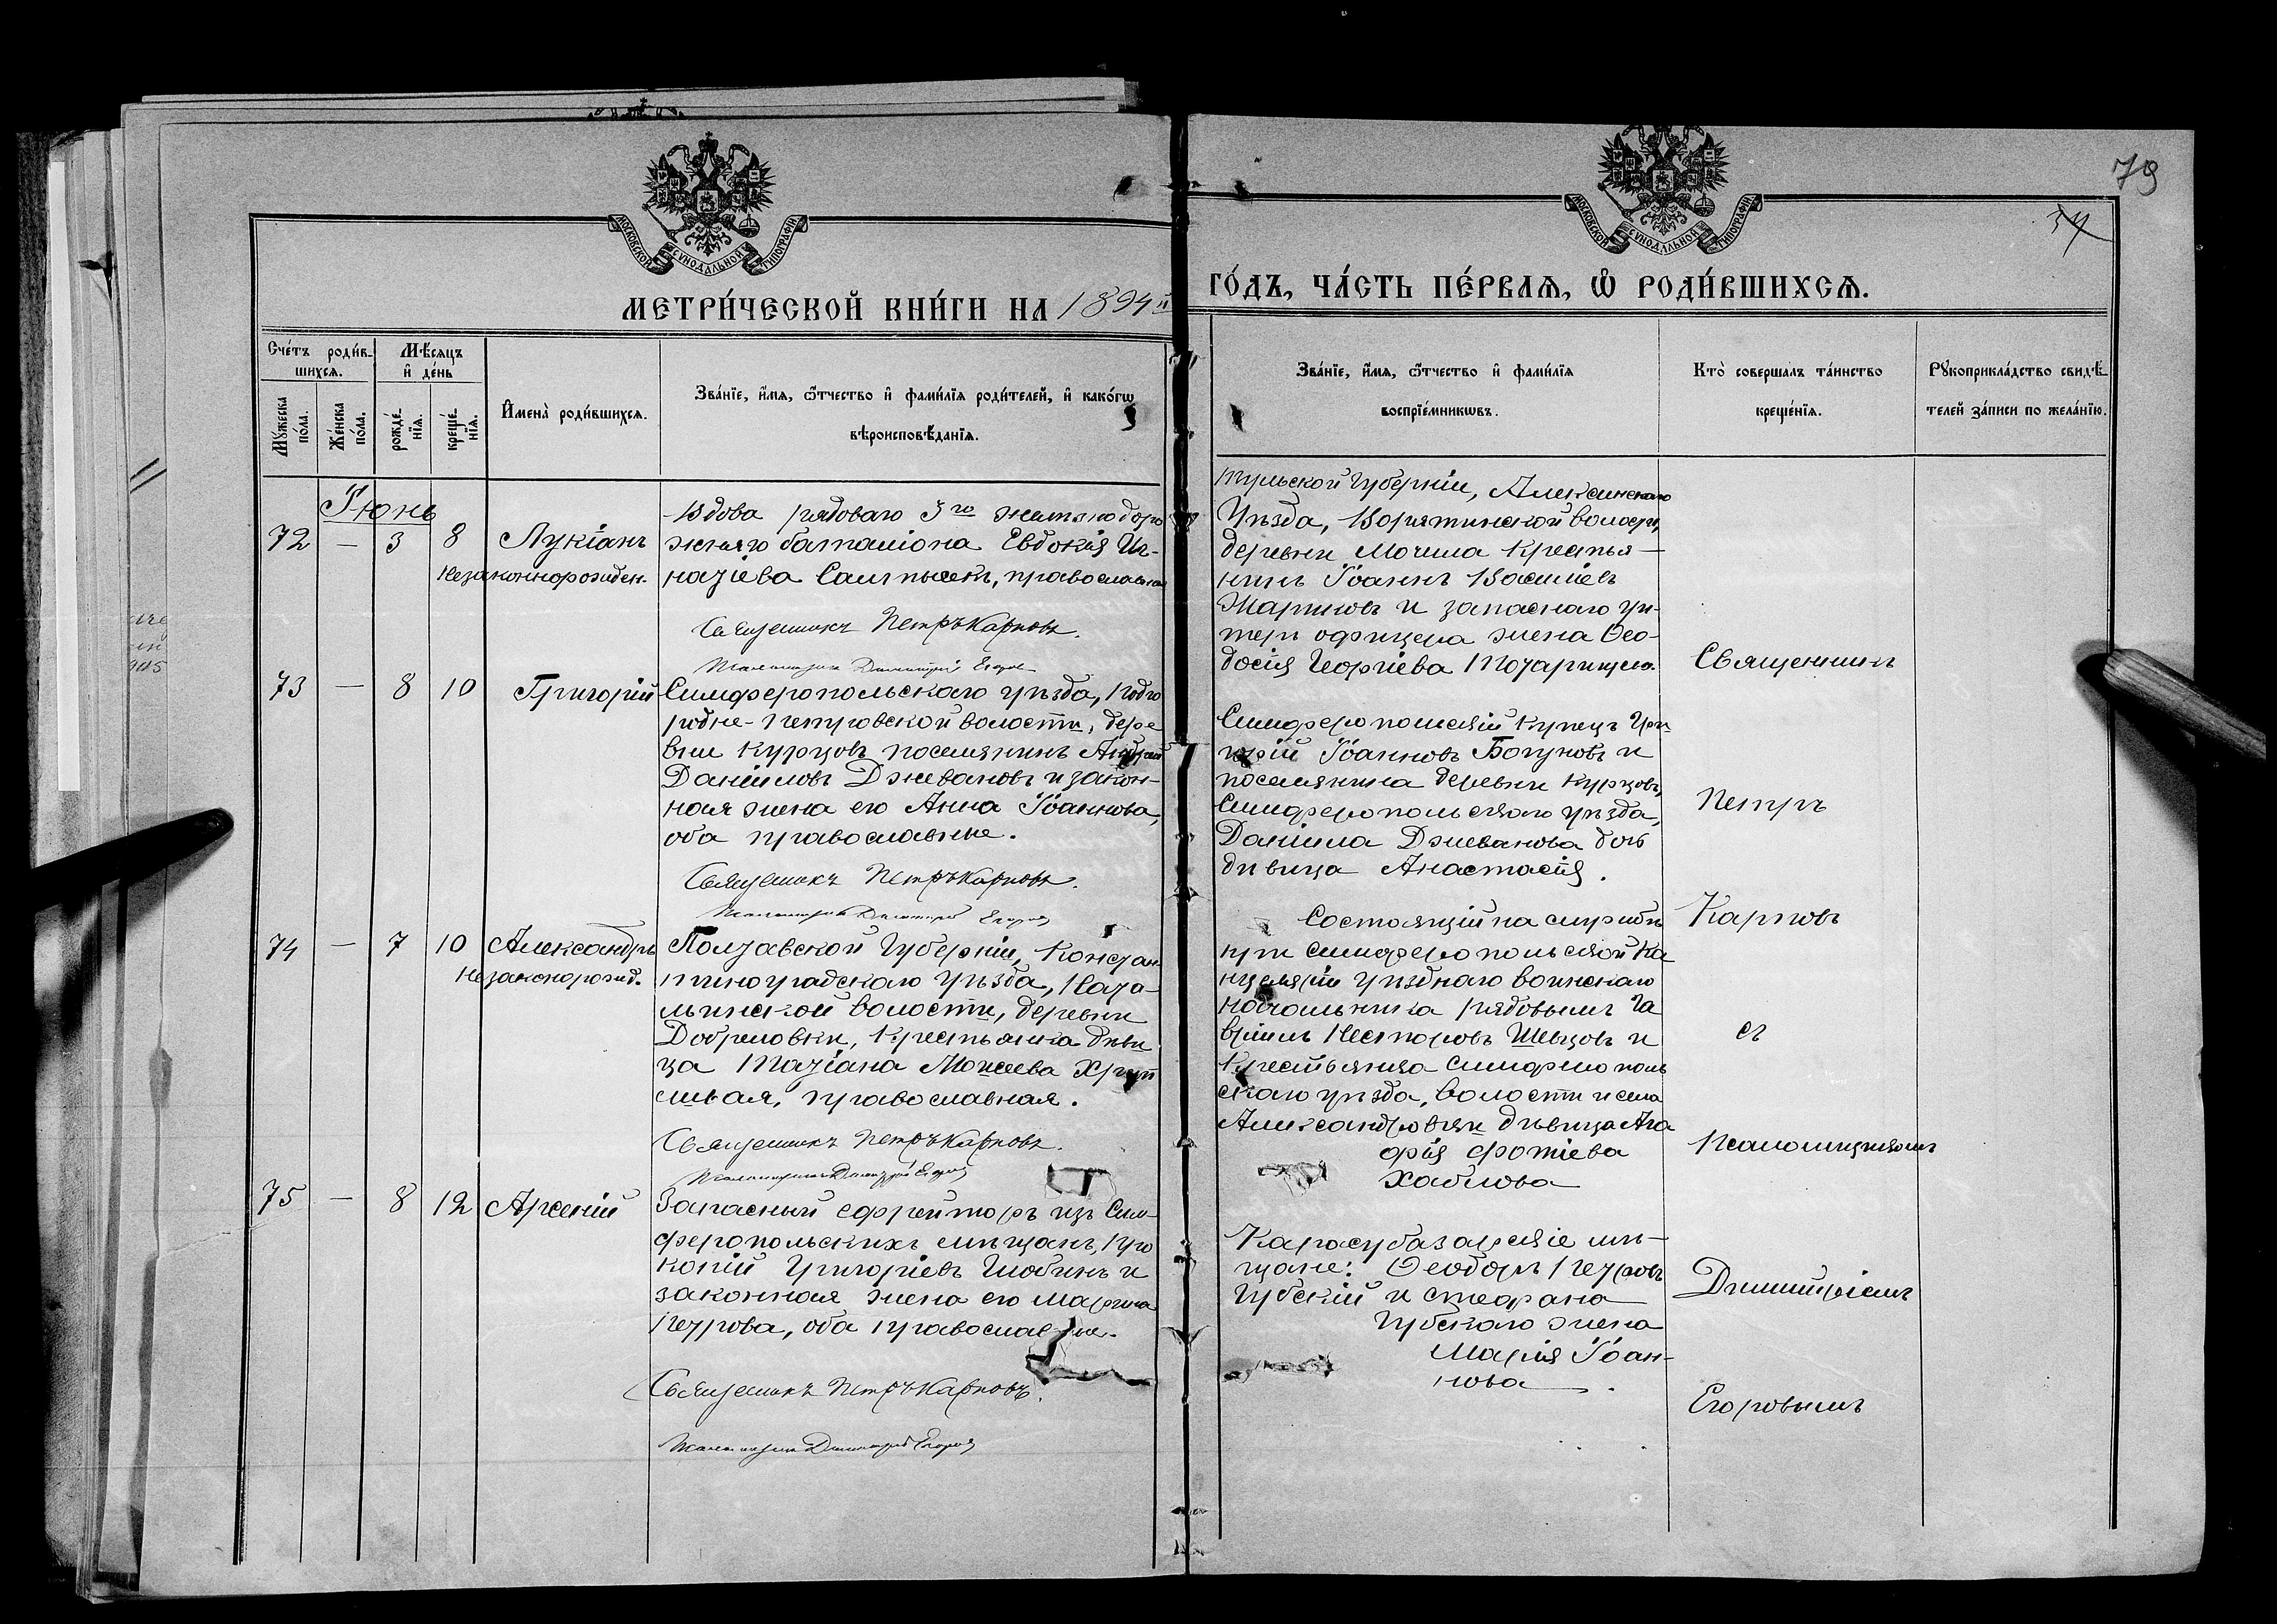 79
34
МЕТРИ́ЧЕСКОЙ КНИ́ГИ НА 1894й
ГО́ДЪ, ЧА́СТЬ ПЕ́РВАЯ, Ѡ҆ РОДИ́ВШИХСЯ.
МОСКОВСКОЙ СѴНОДАЛЬНОЙ ТИПОГРАФІИ
МОСКОВСКОЙ СѴНОДАЛЬНОЙ ТИПОГРАФІИ
Сче́тъ роди́в-
шихся.
Мѣ́сяцъ
и҆ де́нь
Мꙋ́жеска по́ла.
Же́нска по́ла.
рожде́нїя.
креще́нїя.
И҆мена̀ роди́вшихся.
Зва́нїе, и҆́мя, ѻ҆́тчество и҆ фами́лїя роди́телей, и҆ како́гѡ
вѣроисповѣ́данїя.
Зва́нїе, и҆́мя, ѻ҆́тчество и҆ фами́лїя
воспрїе́мникѡвъ.
Кто̀ соверша́лъ та́инство
креще́нїя.
Рꙋкоприкла́дство свидѣ́-
телей за́писи по жела́нїю.
Іюнь
72 — 3 8 Лукіанъ
незаконнорожден.
Вдова рядоваго 3го желѣзнодоро
жнаго баталіона Евдокія Иг-
натіева, православная
Священникъ Петръ Карповъ.
Псаломщикъ Димитрій Егоровъ
Тульской губерніи, Алексинскаго
уѣзда, волости,
деревни крестья-
нинъ Іоаннъ Васильевъ
и запаснаго ун-
теръ офицера жена Ѳео-
досія Георгіева
73 — 8 10 Григорій
Симферопольскаго уѣзда, Подго
родне-Петровской волости, дере
вни Курцовъ поселянинъ Андрей
Даніиловъ Дževановъ и закон-
ная жена его Анна Іоаннова,
оба православные.
Священникъ Петръ Карповъ.
Псаломщикъ Димитрій Егоровъ
Симферопольскій купецъ Гри
горій Іоанновъ Богуновъ и
поселянина деревни Курцовъ,
Симферопольскаго уѣзда,
Даніила Джеванова дочь
дѣвица Анастасія.
74 — 7 10 Александръ
незаконорожд.
Полтавской губерніи, Констан
тиноградскаго уѣзда, Ната-
линской волости, деревни
Добреновки, крестьянка дѣви
ца Татіана Моисеева
православная.
Священникъ Петръ Карповъ.
Псаломщикъ Димитрій Егоровъ
Состоящій на службѣ
при Симферопольской ка
нцеляріи уѣзднаго воинскаго
начальника рядовымъ Га
вріилъ Несторовъ Шевцовъ и
крестьянка Симферополь
скаго уѣзда, волости и села
Александровки дѣвица Ага
фія Фотіева
Хаблова
75 — 8 12 Арсеній
Запасный ефрейторъ изъ Сим-
феропольскихъ мѣщанъ, Про
копій Григоріевъ и
законная жена его Марина
Петрова, оба православные.
Священникъ Петръ Карповъ.
Псаломщикъ Димитрій Егоровъ
Карасубазарскіе мѣ-
щане: Ѳеодоръ Петровъ
Губскій и Стефана
Губскаго жена
Марія Іоан-
нова.
Священникъ
Петръ
Карповъ
съ
псаломщикомъ
Димитріемъ
Егоровымъ